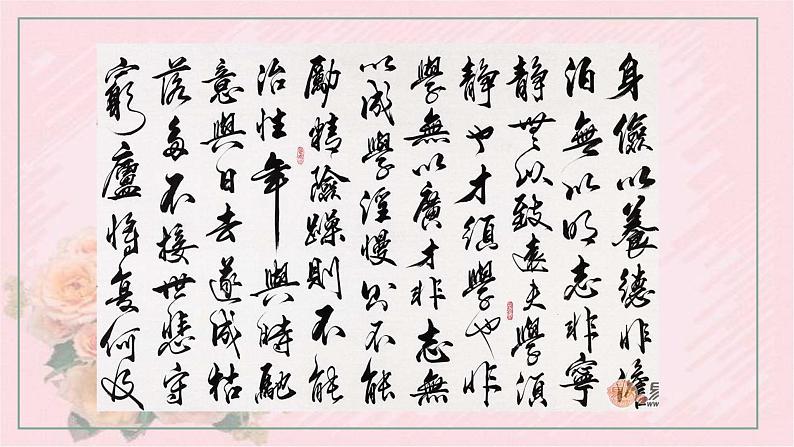 身儉以養德非澹
泊無以明志非寧
静無以致遠夫學須
静也才須學也非
學無以廣才非志無
以成學淫慢则不能
勵精險躁則不能
治性年與時馳
意與日去遂成枯
落多不接世悲守
窮廬將复何及
易
www